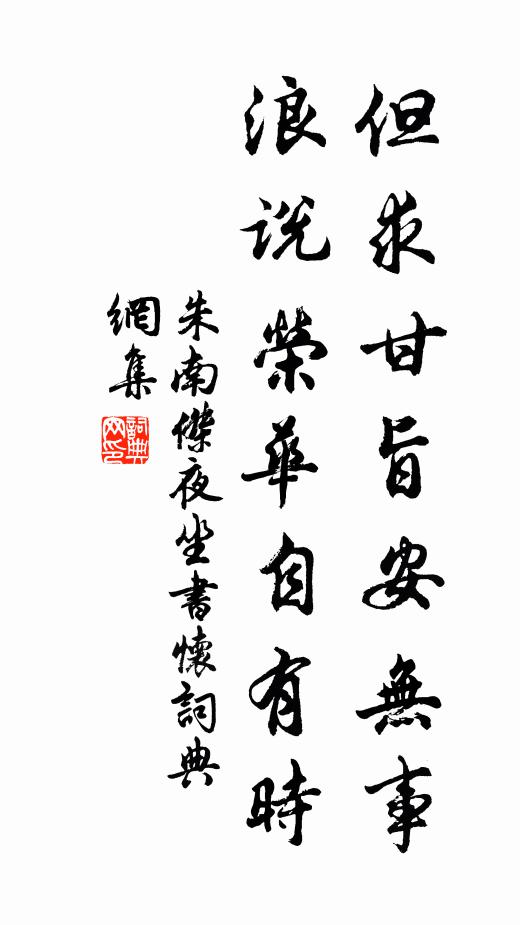 但求甘旨安無事
浪说榮華自有時
朱南傑夜坐書懷詞典
網集
詞典
网印